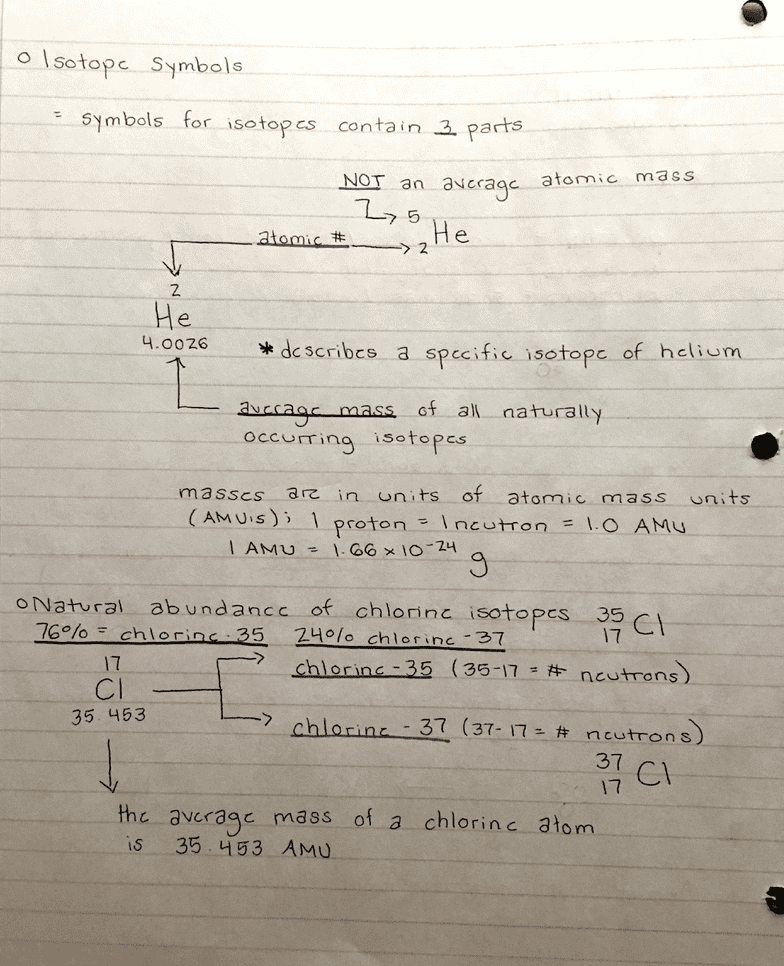 o Isotope Symbols
= symbols for isotopes contain 3 parts
NOT an average atomic mass
5
atomic #
2 He
2
He
4.0026
* describes a specific isotope of helium
average mass of all naturally
occurring isotopes
masses are in units of atomic mass units
(AMU's); 1 proton = 1 neutron = 1.0 AMU
1 AMU = 1.66 x 10-24 g
o Natural abundance of chlorine isotopes 35 17 Cl
76% = chlorine-35 24% chlorine-37
17
Cl
35.453
chlorine-35 (35-17 = # neutrons)
chlorine-37 (37-17 = # neutrons)
37
17 Cl
the average mass of a chlorine atom
is 35.453 AMU